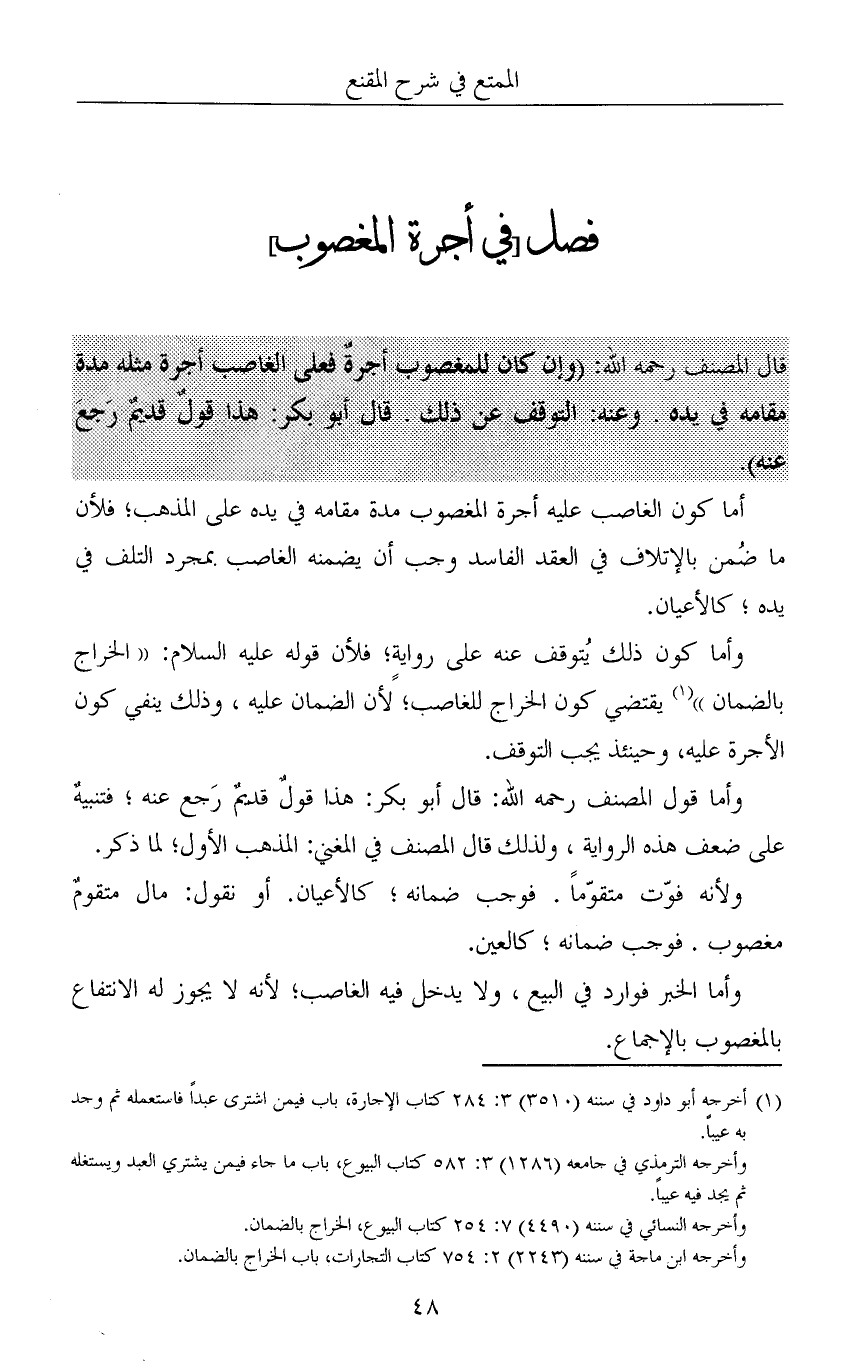 الممتع في شرح المقنع
فصل [في أجرة المغصوب]
قال المصنف رحمه الله: (وإن كان للمغصوب أجرةٌ فعلى الغاصب أجرة مثله مدة
مقامه في يده . وعنه: التوقف عن ذلك . قال أبو بكر: هذا قولٌ قديمٌ رَجعَ
عنه).
أما كون الغاصب عليه أجرة المغصوب مدة مقامه في يده على المذهب؛ فلأن
ما ضُمن بالإتلاف في العقد الفاسد وجب أن يضمنه الغاصب بمجرد التلف في
يده ؛ كالأعيان.
وأما كون ذلك يُتوقف عنه على روايةٍ؛ فلأن قوله عليه السلام: (( الخراج
بالضمان ))(١) يقتضي كون الخراج للغاصب؛ لأن الضمان عليه ، وذلك ينفي كون
الأجرة عليه، وحينئذ يجب التوقف.
وأما قول المصنف رحمه الله: قال أبو بكر: هذا قولٌ قديمٌ رَجع عنه ؛ فتنبيهٌ
على ضعف هذه الرواية ، ولذلك قال المصنف في المغني: المذهب الأول؛ لما ذكر.
ولأنه فوّت متقوّماً . فوجب ضمانه ؛ كالأعيان. أو نقول: مال متقومٌ
مغصوب . فوجب ضمانه ؛ كالعين.
وأما الخبر فوارد في البيع ، ولا يدخل فيه الغاصب؛ لأنه لا يجوز له الانتفاع
بالمغصوب بالإجماع.
(١) أخرجه أبو داود في سننه (٣٥١٠) ٣: ٢٨٤ كتاب الإجارة، باب فيمن اشترى عبداً فاستعمله ثم وجد
به عيباً.
وأخرجه الترمذي في جامعه (١٢٨٦) ٣: ٥٨٢ كتاب البيوع، باب ما جاء فيمن يشتري العبد ويستغله
ثم يجد فيه عيباً.
وأخرجه النسائي في سننه (٤٤٩٠) ٧: ٢٥٤ كتاب البيوع، الخراج بالضمان.
وأخرجه ابن ماجة في سننه (٢٢٤٣) ٢: ٧٥٤ كتاب التجارات، باب الخراج بالضمان.
٤٨